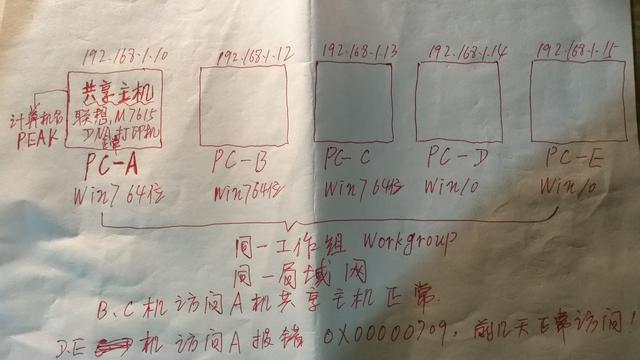 192.168.1.10 192.168.1.12 192.168.1.13 192.168.1.14 192.168.1.15
共享主机
计算机名 联想M7615
PEAK DNA打印机
PC-A PC-B PC-C PC-D PC-E
Win7 64位 Win7 64位 Win7 64位 Win10 Win10
同一工作组 Workgroup
同一局域网
B、C机访问A机共享主机正常!
D.E 机访问A报错 0X00000709,前几天正常访问!